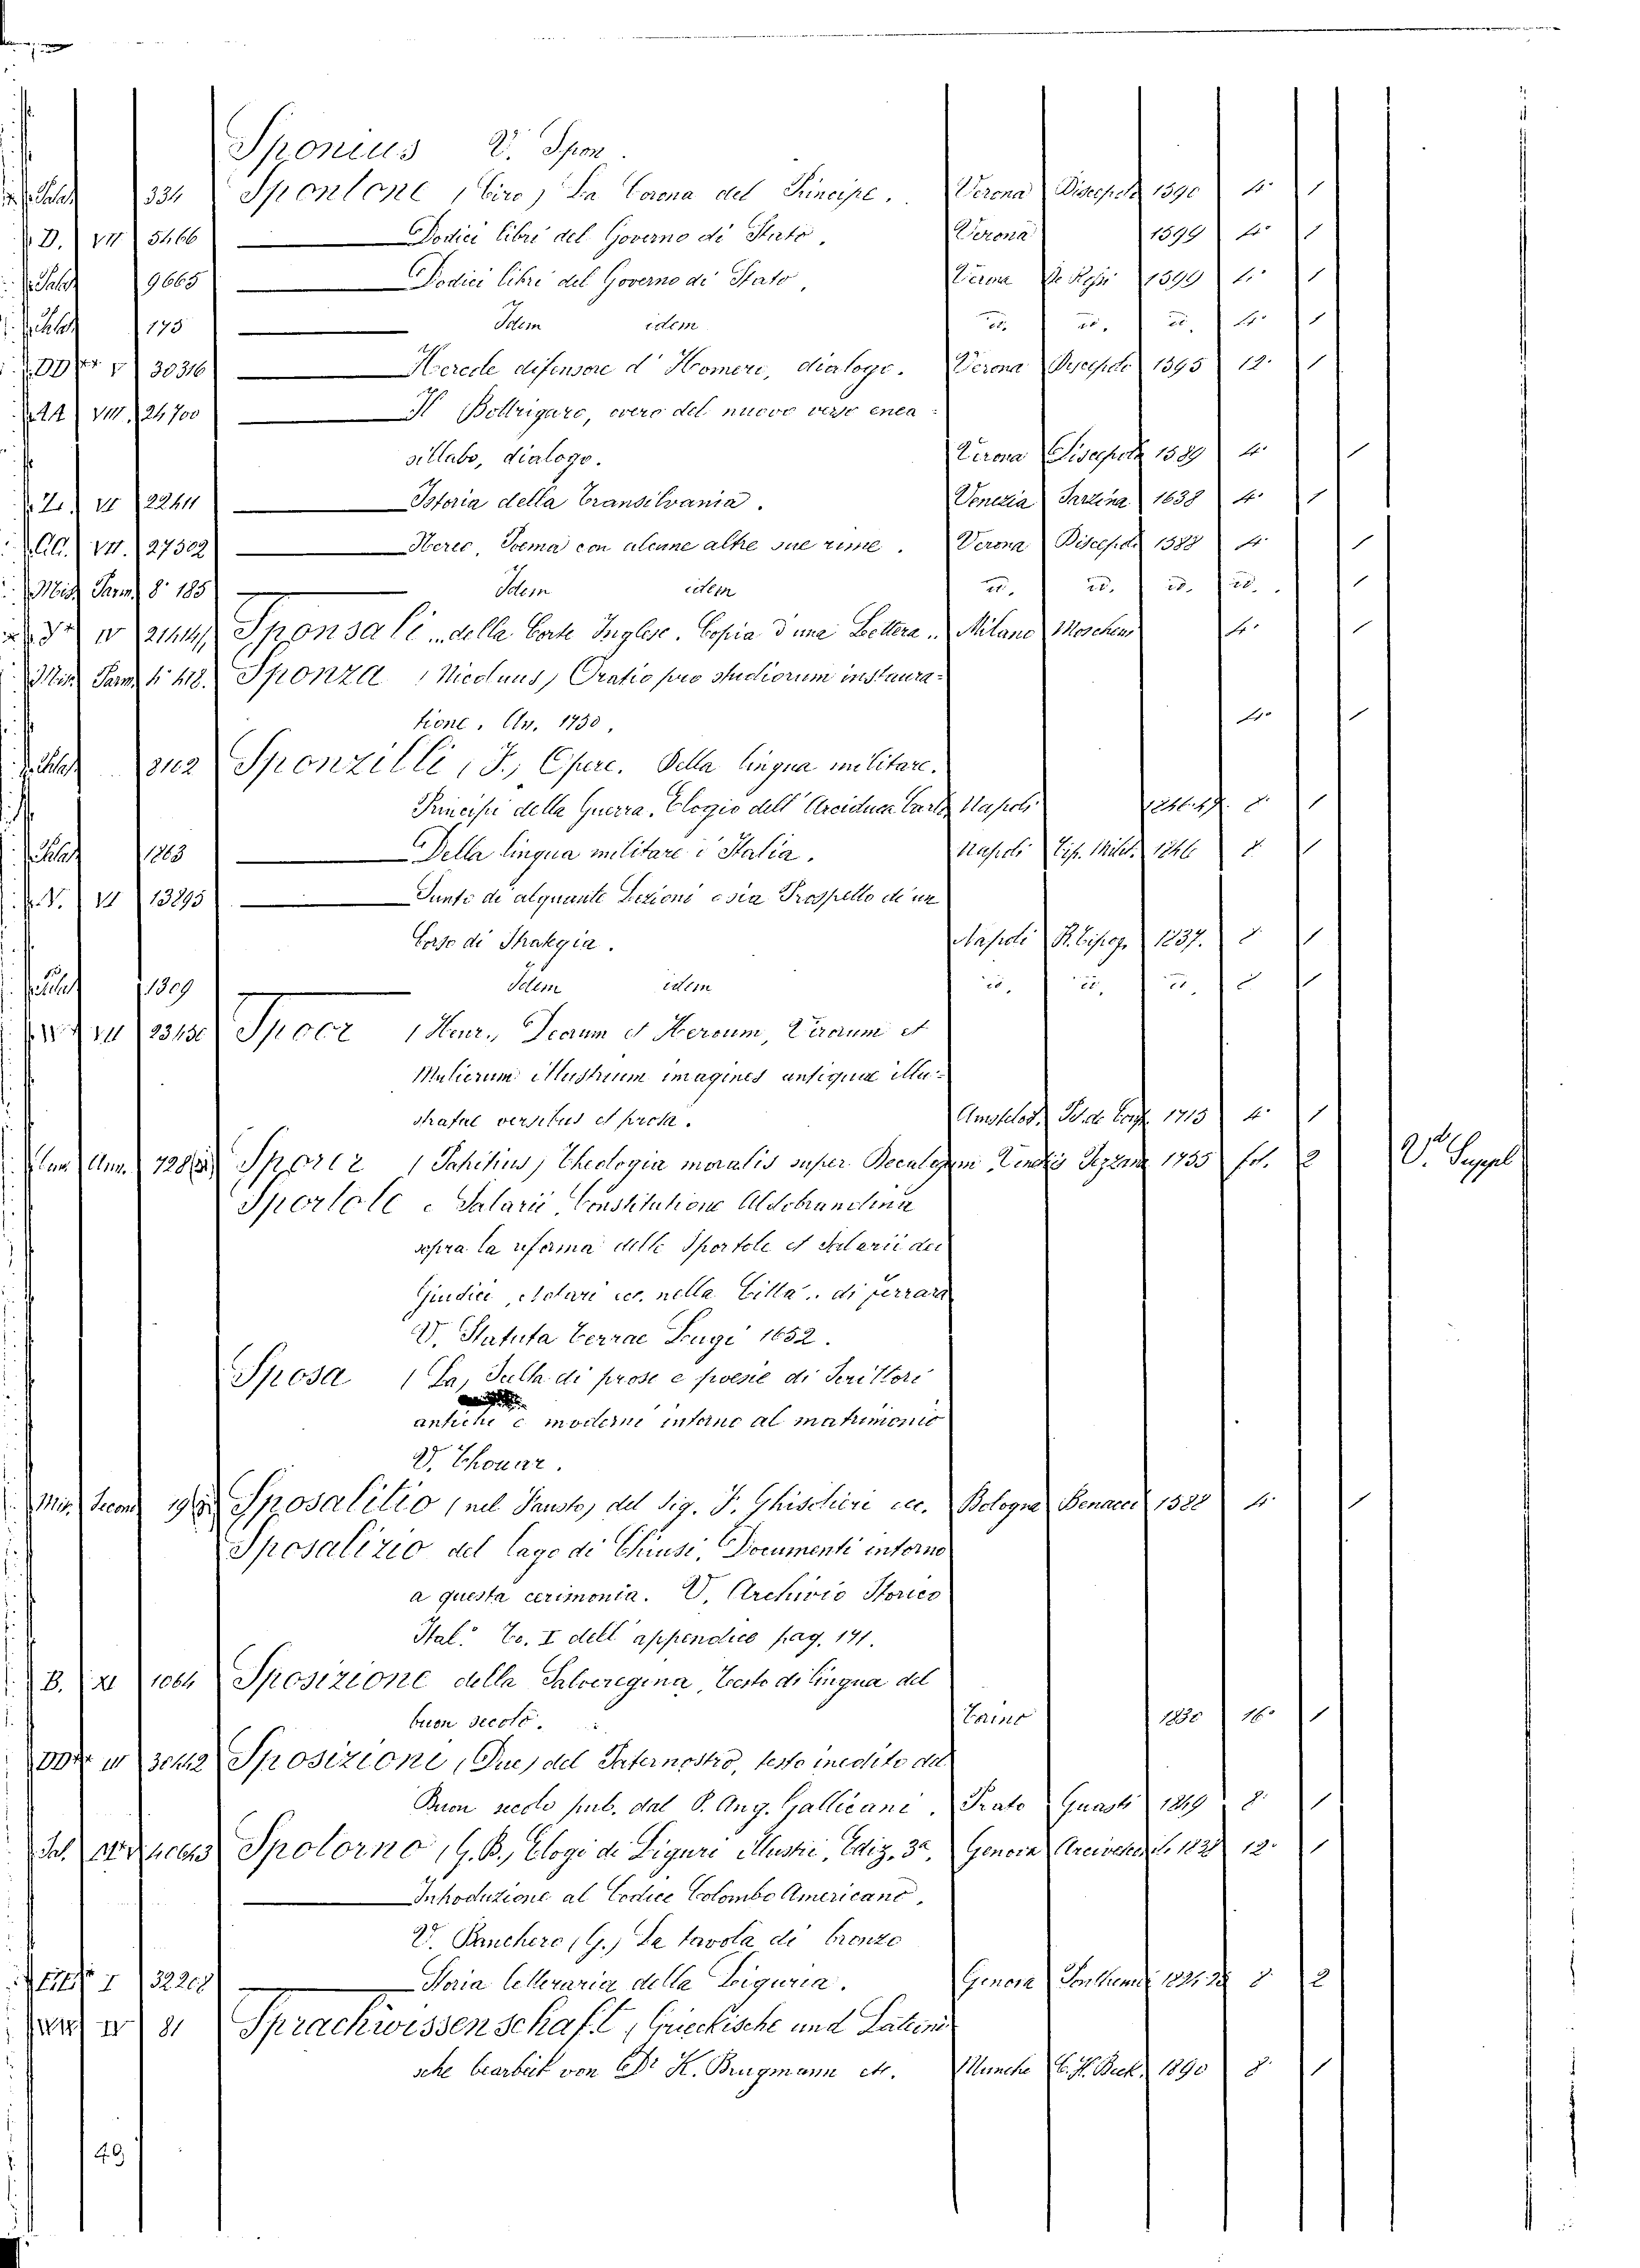 Sponius V. Spon.
Palat 334 Spontone (Ciro) La Corona del Principe. Verona Discepolo 1590 4° 1
D. VII 5466 Dodici libri del Governo di Stato. Verona 1599 4° 1
Palat 9665 Dodici libri del Governo di Stato, Verona 1599 4° 1
Palat 175 Idem idem id. id. id. 4° 1
DD V 30316 Hercole difensore d'Homero, dialogo. Verona Discepolo 1595 12° 1
AA VIII. 24700 Il Bottrigaro, overo del nuovo verso enea
sillabo, dialogo. Verona Discepolo 1589 4° 1
Z. VI 22411 Istoria della Transilvania. Venezia Sarzina 1638 4° 1
CC. VII. 27302 Hereo, Poema con alcune altre sue rime. Verona Discepolo 1588 4° 1
Misc Parm. 8° 185 Idem idem id. id. id. id. 1
IV 21441 Sponsali .. della Corte Inglese. Copia d'una Lettera .. Milano Moscheni 4° 1
Misc Parm. 4° 418. Sponza (Nicolaus) Oratio pro studiorum instaura-
tione. An. 1730. 4° 1
Palat 8162 Sponzilli (F.) Opere. Della lingua militare.
Principii della Guerra. Elogio dell'Arciduca Carlo Napoli 1846.47. 8° 1
Palat 1863 Della lingua militare d'Italia. Napoli Tip. Milit. 1846 8° 1
V. VI 13895 Sunto di alquante Lezioni o sia Prospetto di un
Corso di Strategia. Napoli R. Tipog. 1837. 8° 1
Palat 1309 Idem idem id. id. id. 8° 1
23450 Spoor (Henr.) Deorum et Heroum, Virorum et
Mulierum Illustrium imagines antiquae illu-
stratae versibus et prosa. Amstelod. 1715 4° 1
Spörer (Patritius) Theologia moralis super Decalogum 1755 fol. 2 V. Suppl
Sportole e Salarii, Constitutione Aldobrandina
sopra la riforma delle Sportole et Salarii dei
Giudici, Notari ecc. nella Citta .. di Ferrara
V. Statuta Terrae Lugi 1652.
Sposa (La) di prose e poesie di Scrittori
antichi e moderni intorno al matrimonio
V. Thouar.
Misc Sposalitio (nel Fausto) del Sig. F. Ghislieri ecc. Bologna Benacci 1588 4° 1
Sposalizio del lago di Chiusi, Documenti intorno
a questa cerimonia. V. Archivio Storico
Ital. To. I dell'appendice pag. 141.
B. XI 1064 Sposizione della Salveregina, Testo di lingua del
buon secolo. Torino 1830 16° 1
Sposizioni (Due) del Paternostro, testo inedito del
Buon secolo pub. dal P. Ang. Gallicani. Prato Guasti 1849 8° 1
Spotorno (G.B.) Elogi di Liguri Illustri, Ediz. 3a. Genova 1828 12° 1
Introduzione al Codice Colombo Americano.
V. Banchero (G.) La tavola di bronzo
I 32208 Storia letteraria della Liguria. Genova Ponthenier 8° 2
IV 81 Sprachwissenschaft, Griechische und Lateini-
sche bearbeit von Dr K. Brugmann etc. Munche C. H. Beck. 1890 8° 1
49